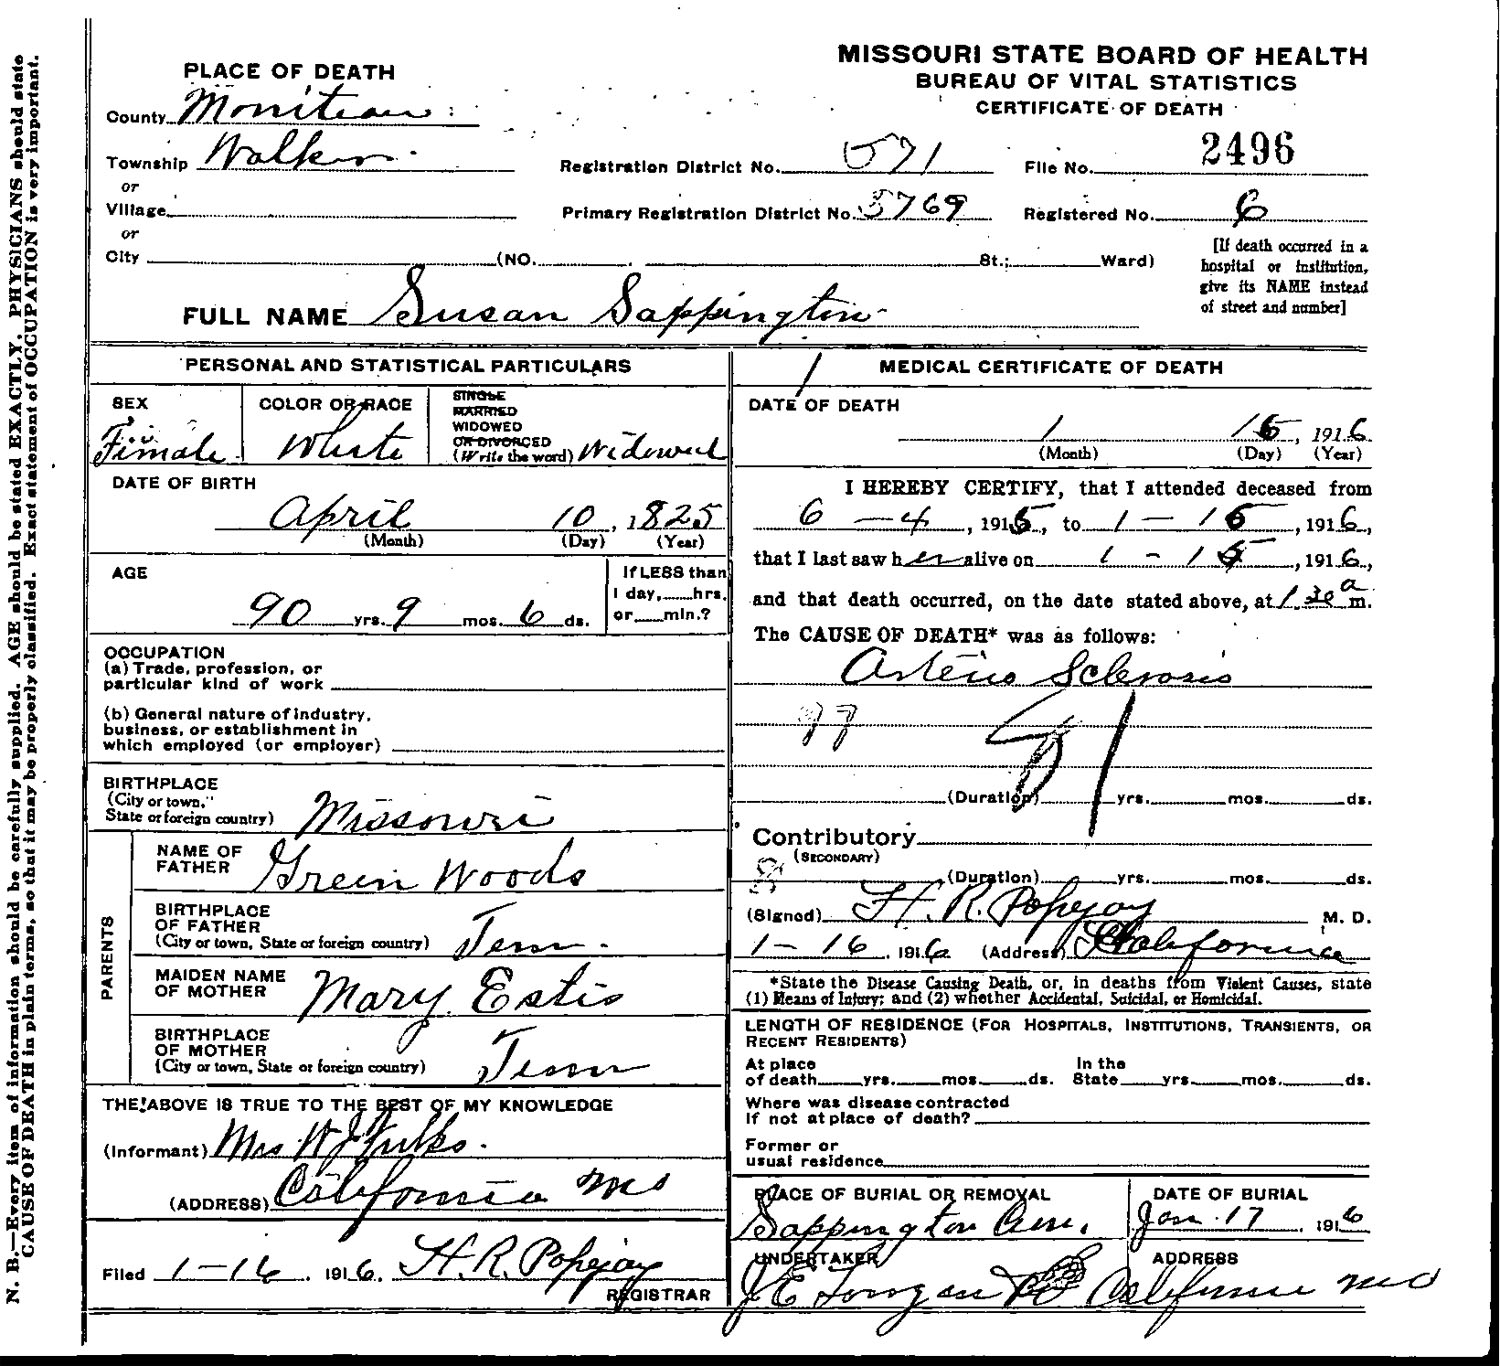 MISSOURI STATE BOARD OF HEALTH
BUREAU OF VITAL STATISTICS
CERTIFICATE OF DEATH
PLACE OF DEATH
County Moniteau
Township Walker
or
Village
or
City (NO. St.; Ward)
Registration District No. 571 File No. 2496
Primary Registration District No. 5769 Registered No. 6
[If death occurred in a
hospital or institution,
give its NAME instead
of street and number]
FULL NAME Susan Sappington
PERSONAL AND STATISTICAL PARTICULARS
SEX
Female
COLOR OR RACE
White
SINGLE
MARRIED
WIDOWED
OR DIVORCED
(Write the word) Widowed
DATE OF BIRTH
April 10, 1825
(Month) (Day) (Year)
AGE
90 yrs. 9 mos. 6 ds.
If LESS than
1 day, hrs.
or min.?
OCCUPATION
(a) Trade, profession, or
particular kind of work
(b) General nature of industry,
business, or establishment in
which employed (or employer)
BIRTHPLACE
(City or town,
State or foreign country) Missouri
PARENTS
NAME OF
FATHER Green Woods
BIRTHPLACE
OF FATHER
(City or town, State or foreign country) Tenn.
MAIDEN NAME
OF MOTHER Mary Estis
BIRTHPLACE
OF MOTHER
(City or town, State or foreign country) Tenn
THE ABOVE IS TRUE TO THE BEST OF MY KNOWLEDGE
(Informant) Mrs W J Fulks.
(ADDRESS) California Mo
Filed 1-16, 1916. H. R. Popejoy
REGISTRAR
MEDICAL CERTIFICATE OF DEATH
DATE OF DEATH
1 16, 1916
(Month) (Day) (Year)
I HEREBY CERTIFY, that I attended deceased from
6-4, 1915, to 1-16, 1916,
that I last saw her alive on 1-15, 1916,
and that death occurred, on the date stated above, at 1.30 a m.
The CAUSE OF DEATH* was as follows:
Arterio Sclerosis
(Duration) yrs. mos. ds.
Contributory
(SECONDARY)
(Duration) yrs. mos. ds.
(Signed) H. R. Popejoy M. D.
1-16, 1916 (Address) California
*State the Disease Causing Death, or, in deaths from Violent Causes, state
(1) Means of Injury; and (2) whether Accidental, Suicidal, or Homicidal.
LENGTH OF RESIDENCE (FOR HOSPITALS, INSTITUTIONS, TRANSIENTS, OR
RECENT RESIDENTS)
At place In the
of death yrs. mos. ds. State yrs. mos. ds.
Where was disease contracted
If not at place of death?
Former or
usual residence
PLACE OF BURIAL OR REMOVAL
Sappington Cem.
DATE OF BURIAL
Jan. 17, 1916
UNDERTAKER ADDRESS
J E California Mo
N. B.—Every item of information should be carefully supplied. AGE should be stated EXACTLY. PHYSICIANS should state
CAUSE OF DEATH in plain terms, so that it may be properly classified. Exact statement of OCCUPATION is very important.